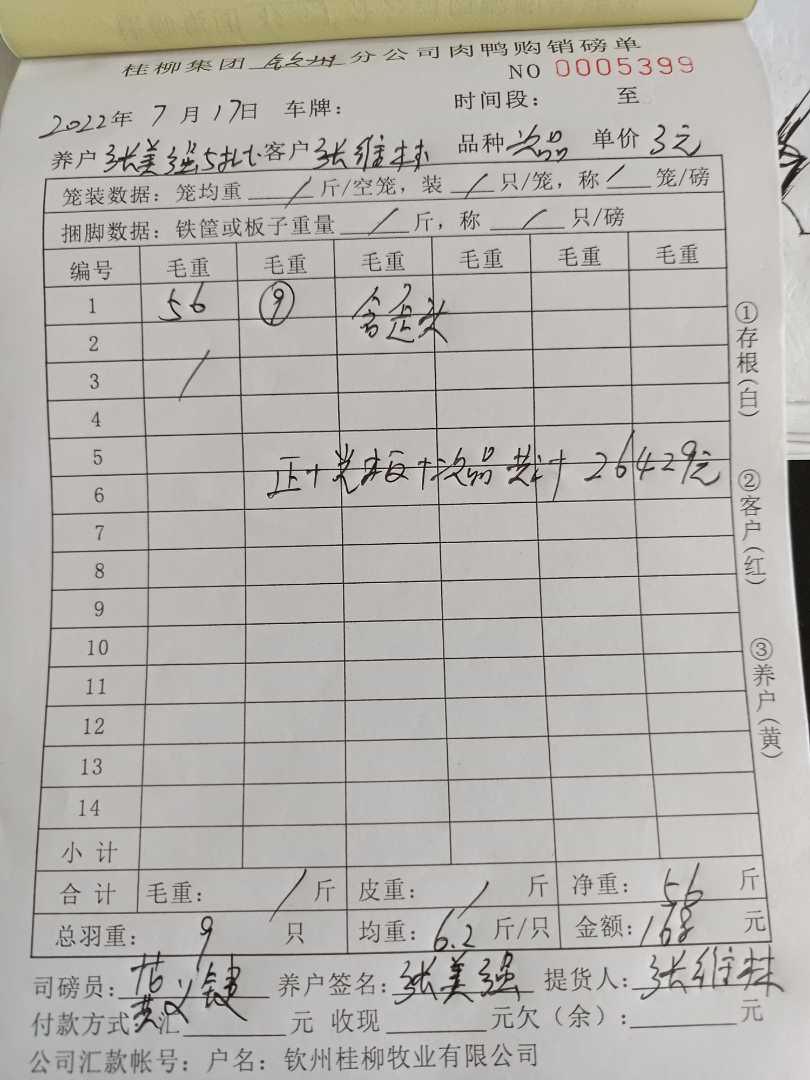 桂柳集团 钦州 分公司肉鸭购销磅单
NO 0005399
2022年 7 月 17日 车牌: 时间段: 至
养户 张美强 客户 张维林 品种 次品 单价 3元
笼装数据: 笼均重 / 斤/空笼, 装 / 只/笼, 称 / 笼/磅
捆脚数据: 铁筐或板子重量 / 斤, 称 / 只/磅
编号 毛重 毛重 毛重 毛重 毛重 毛重
1 56 ⑨
2
3 /
4
5
正+光板+次品共计 26429元
6
7
8
9
10
11
12
13
14
小 计
合 计 毛重: / 斤 皮重: / 斤 净重: 56 斤
总羽重: 9 只 均重: 6.2 斤/只 金额: 168 元
司磅员: 黄义键 养户签名: 张美强 提货人: 张维林
付款方式 汇 元 收现 元欠(余): 元
公司汇款帐号: 户名: 钦州桂柳牧业有限公司
①存根(白)
②客户(红)
③养户(黄)